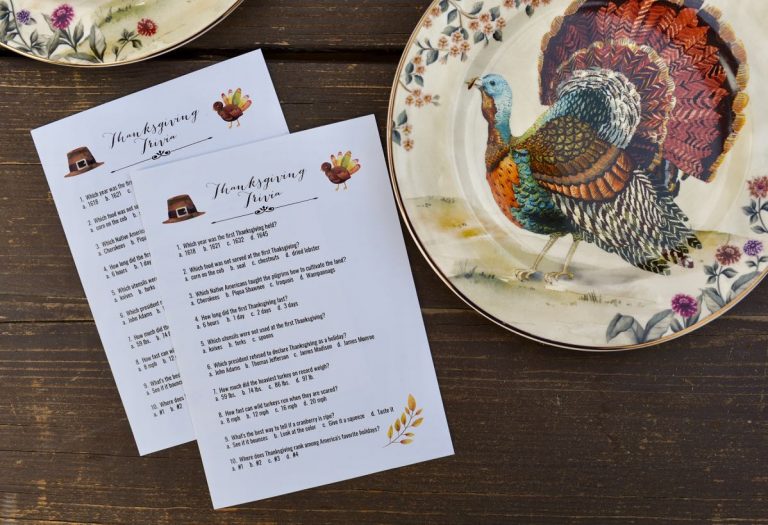 Thanksgiving
Trivia
1. Which year was the
a. 1618 b. 1621
2. Which food was not
a. corn on the cob b.
3. Which Native
a. Cherokees b.
4. How long did the
a. 6 hours b. 1 day
5. Which utensils were
a. knives b. forks
6. Which president
a. John Adams b.
7. How much did the
a. 59 lbs. b. 74
8. How fast can wild
a. 8 mph b. 12
9. What's the best
a. See if it bounces
10. Where does
a. #1 b. #2
Thanksgiving
Trivia
1. Which year was the first Thanksgiving held?
a. 1618 b. 1621 c. 1632 d. 1645
2. Which food was not served at the first Thanksgiving?
a. corn on the cob b. seal c. chestnuts d. dried lobster
3. Which Native Americans taught the pilgrims how to cultivate the land?
a. Cherokees b. Piqua Shawnee c. Iroquois d. Wampanoags
4. How long did the first Thanksgiving last?
a. 6 hours b. 1 day c. 2 days d. 3 days
5. Which utensils were not used at the first Thanksgiving?
a. knives b. forks c. spoons
6. Which president refused to declare Thanksgiving as a holiday?
a. John Adams b. Thomas Jefferson c. James Madison d. James Monroe
7. How much did the heaviest turkey on record weigh?
a. 59 lbs. b. 74 lbs. c. 86 lbs. d. 91 lb.
8. How fast can wild turkeys run when they are scared?
a. 8 mph b. 12 mph c. 16 mph d. 20 mph
9. What's the best way to tell if a cranberry is ripe?
a. See if it bounces b. Look at the color c. Give it a squeeze d. Taste it
10. Where does Thanksgiving rank among America's favorite holidays?
a. #1 b. #2 c. #3 d. #4